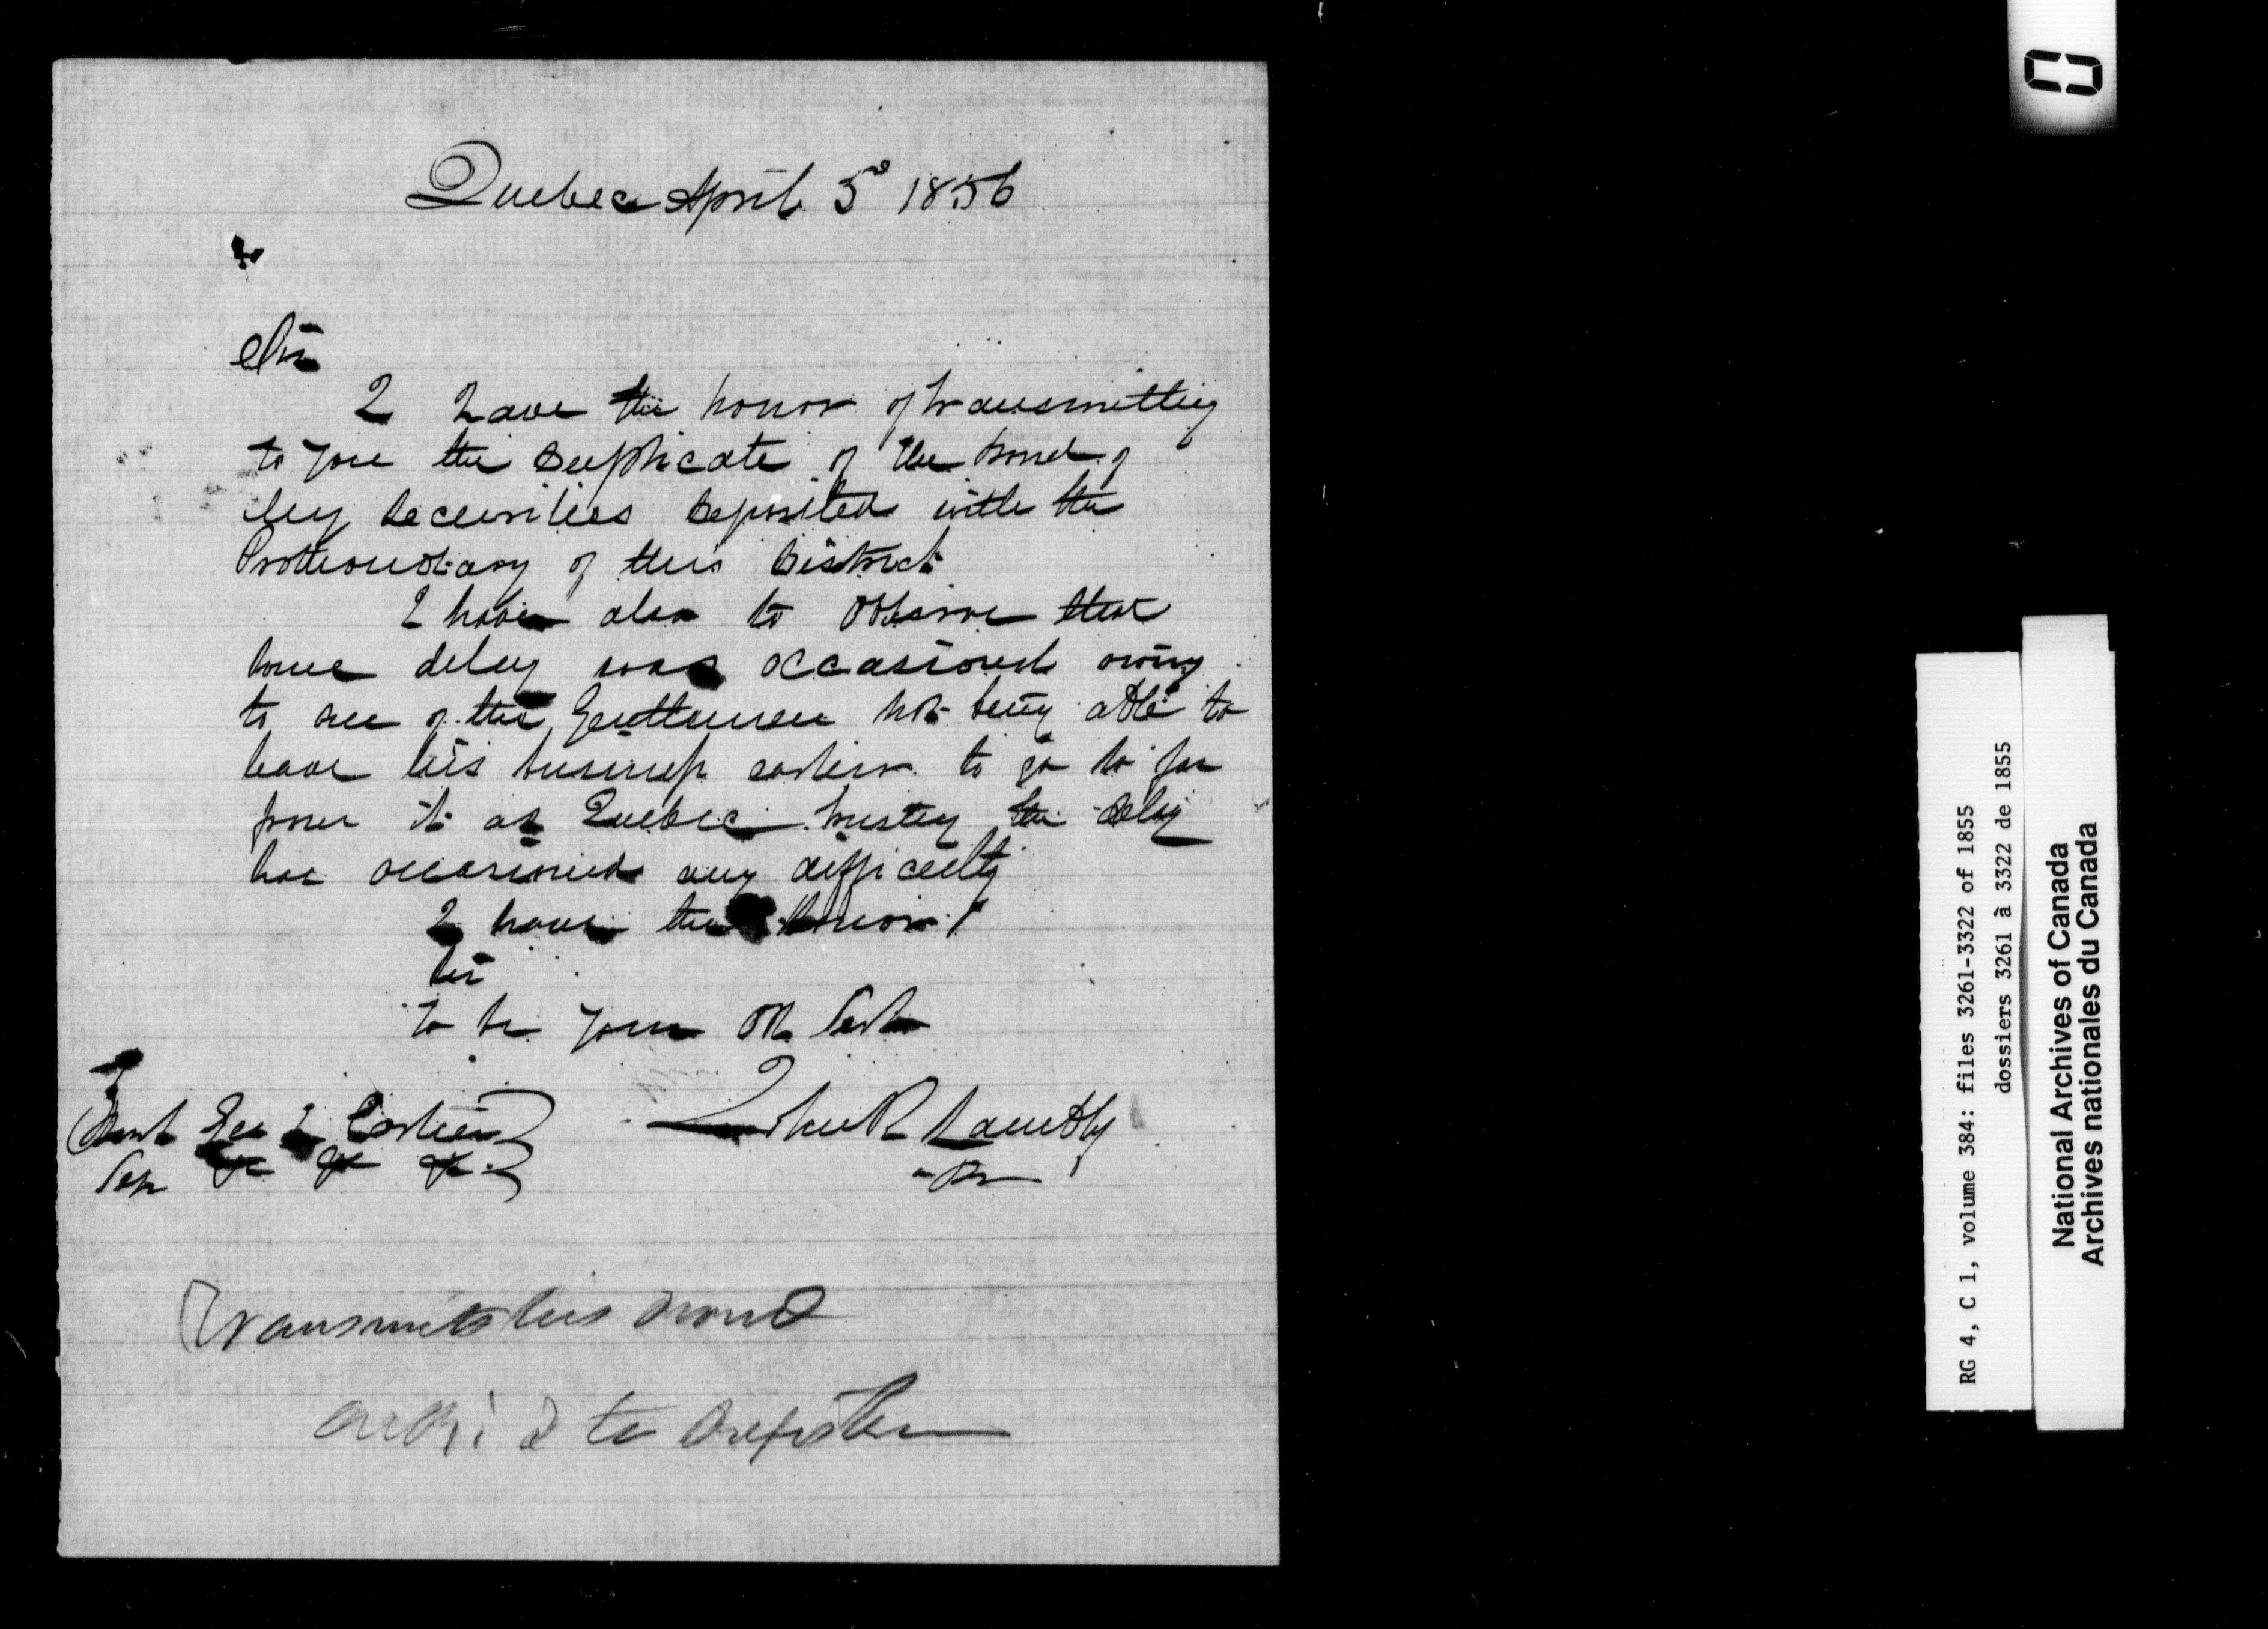 Quebec April 5° 1856
Sir
I have the honor of transmitting
to you the Duplicate of the bond of
My Securities Deposited with the
Prothonotary of this District
I have also to Observe that
some delay was occasioned owing
to one of the Gentlemen not being able to
leave his business earlier to go so far
from it as Quebec trusting the delay
has occasioned any difficulty
I have the Honor
Sir
to be your Ob Sert
Geo E Cartier
John R Lambly
&c &c &c
Transmits his bond
to Register
RG 4, C 1, volume 384: files 3261-3322 of 1855
dossiers 3261 à 3322 de 1855
National Archives of Canada
Archives nationales du Canada